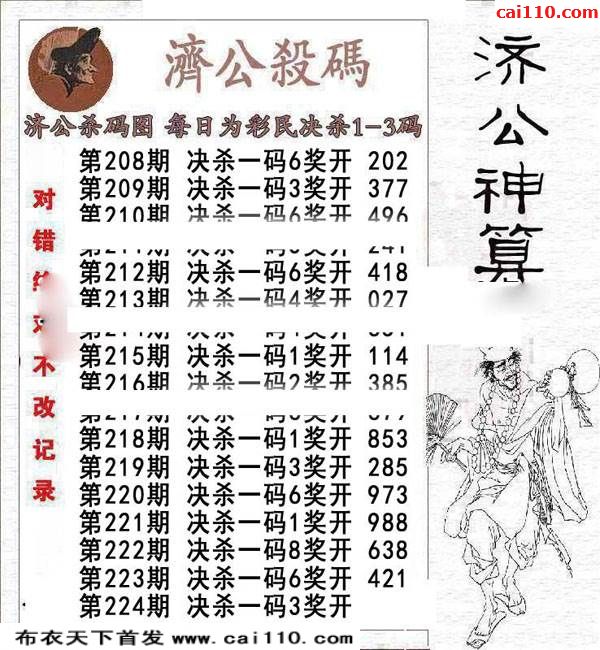 cai110.com
濟公殺碼
济公神算
济公杀码图 每日为彩民决杀1-3码
对错绝对不改记录
第208期 决杀一码6奖开 202
第209期 决杀一码3奖开 377
第210期 决杀一码6奖开 496
第212期 决杀一码6奖开 418
第213期 决杀一码4奖开 027
第215期 决杀一码1奖开 114
第216期 决杀一码2奖开 385
第218期 决杀一码1奖开 853
第219期 决杀一码3奖开 285
第220期 决杀一码6奖开 973
第221期 决杀一码1奖开 988
第222期 决杀一码8奖开 638
第223期 决杀一码6奖开 421
第224期 决杀一码3奖开
布衣天下首发 www.cai110.com